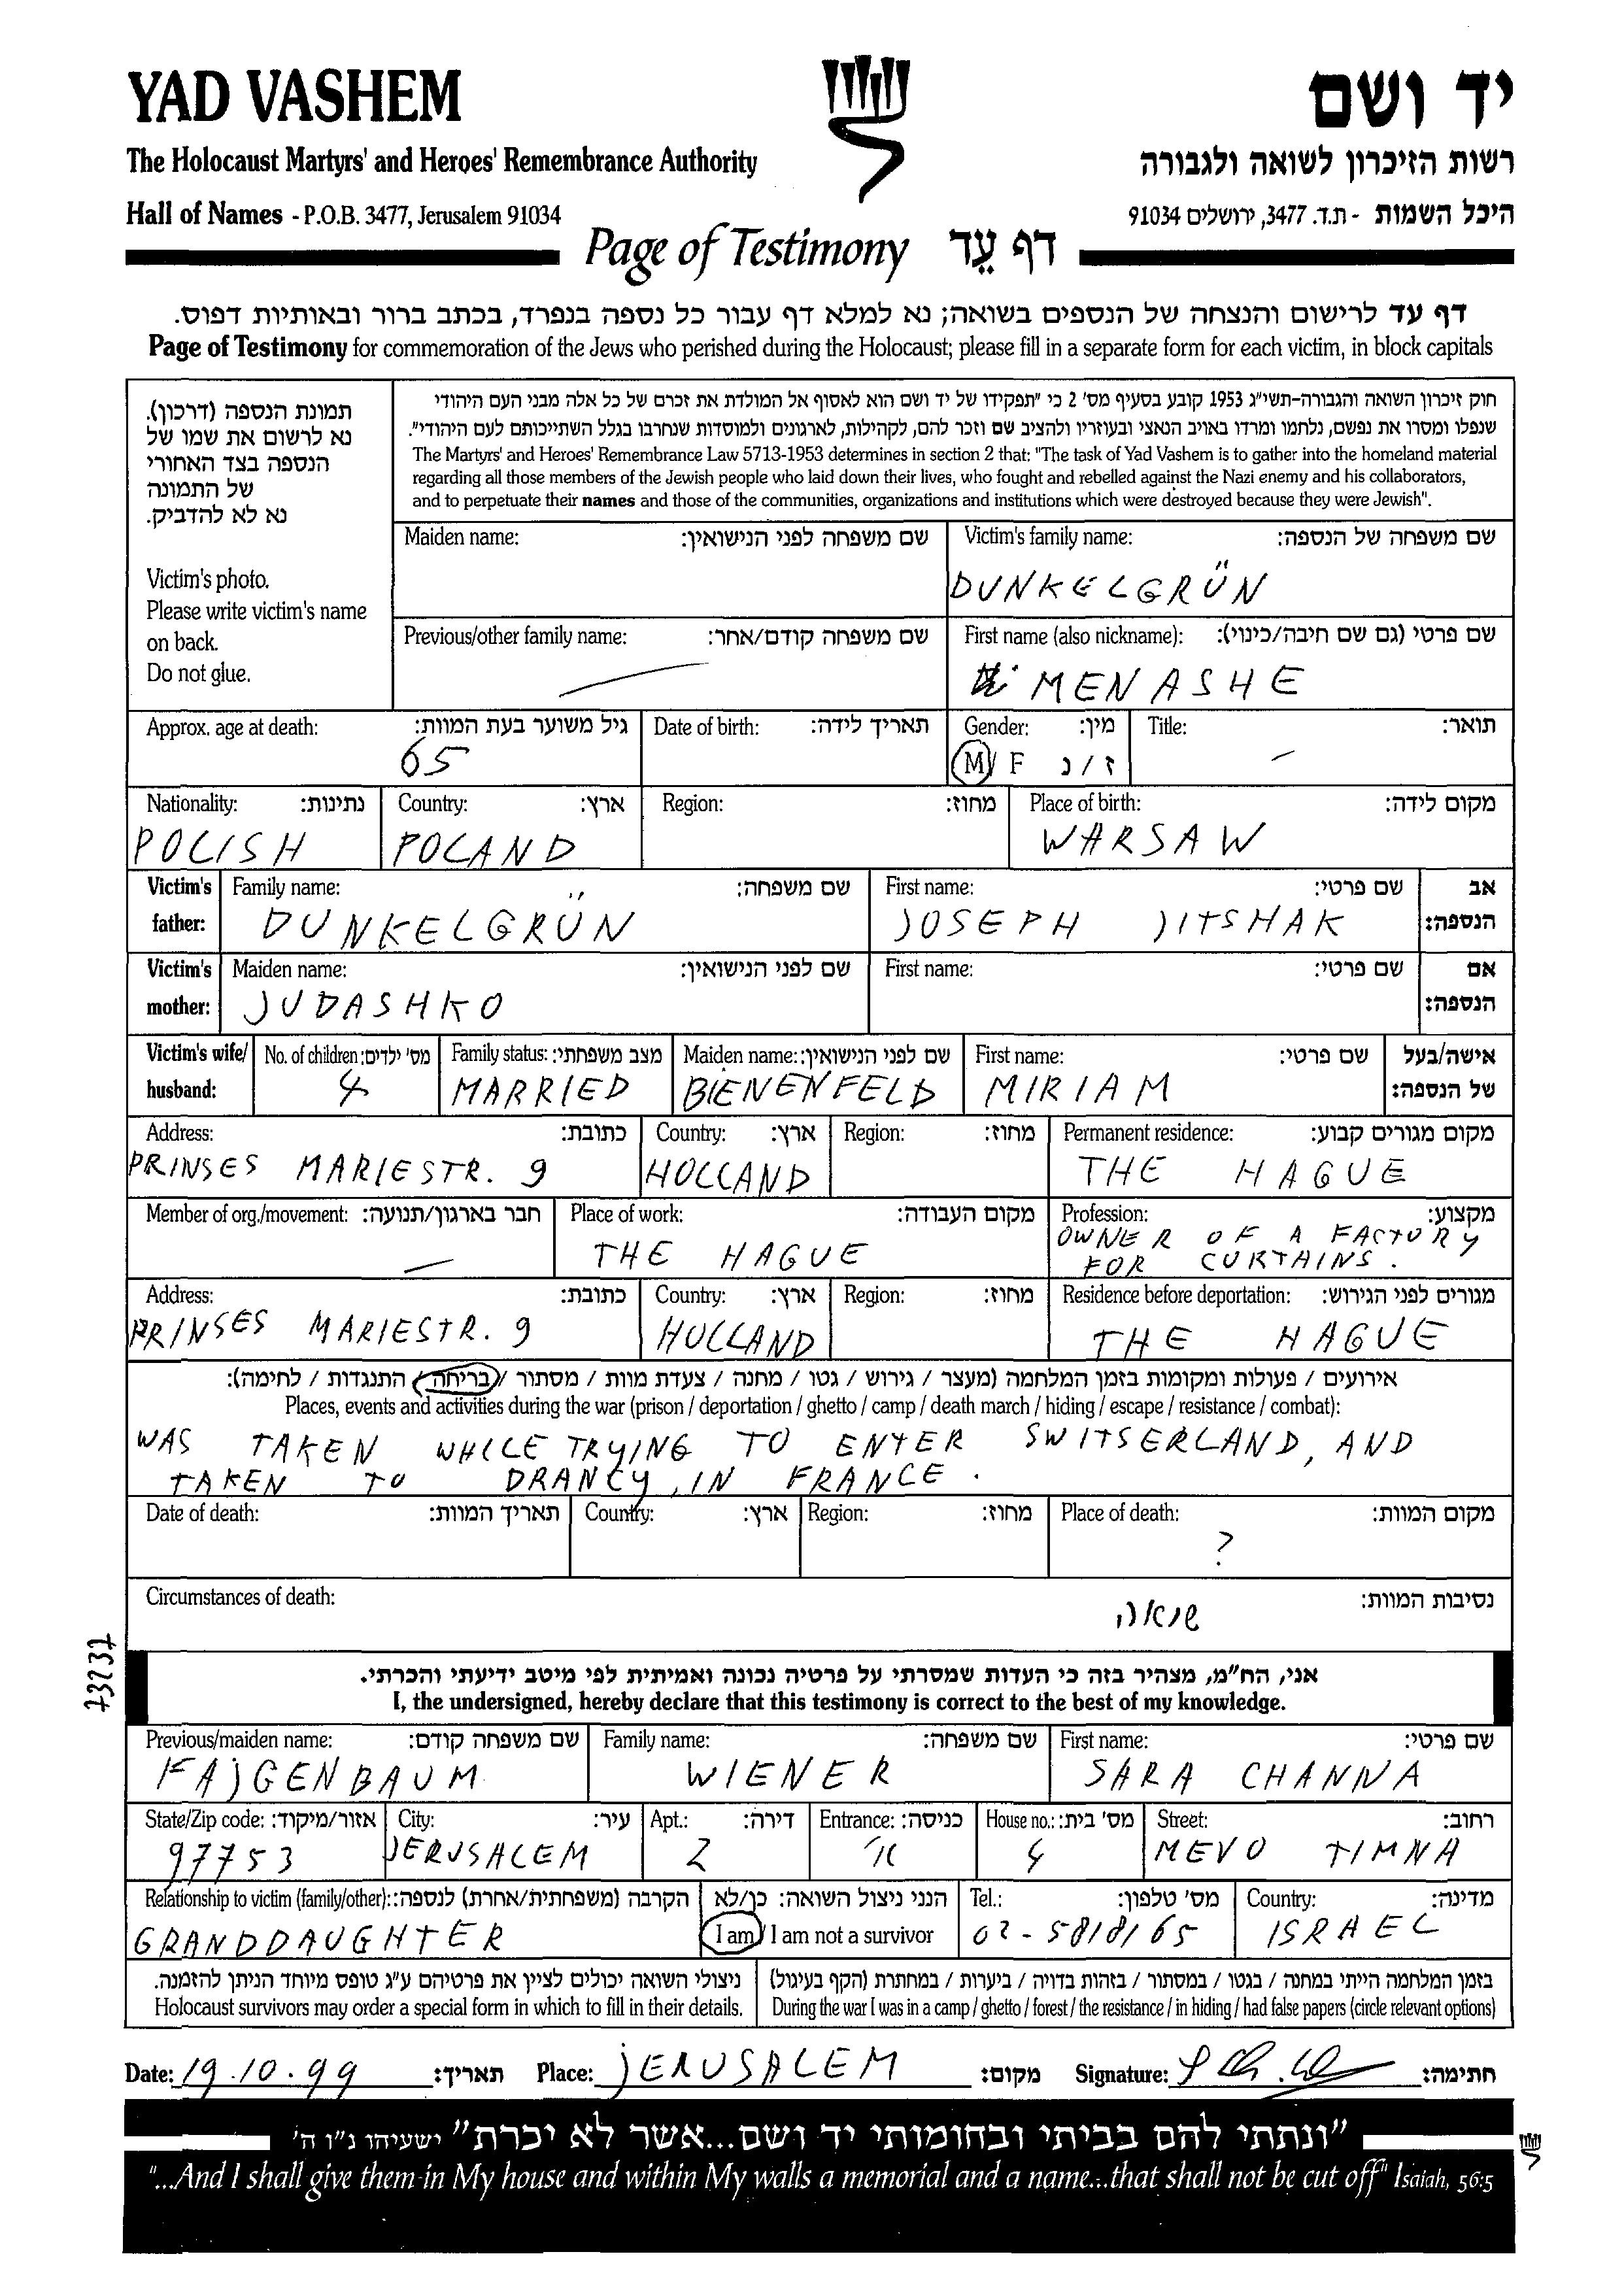 YAD VASHEM
יד ושם
The Holocaust Martyrs' and Heroes' Remembrance Authority
רשות הזיכרון לשואה ולגבורה
Hall of Names - P.O.B. 3477, Jerusalem 91034
היכל השמות - ת.ד. 3477, ירושלים 91034
Page of Testimony דף עֵד
דף עד לרישום והנצחה של הנספים בשואה; נא למלא דף עבור כל נספה בנפרד, בכתב ברור ובאותיות דפוס.
Page of Testimony for commemoration of the Jews who perished during the Holocaust; please fill in a separate form for each victim, in block capitals
תמונת הנספה (דרכון).
נא לרשום את שמו של
הנספה בצד האחורי
של התמונה
נא לא להדביק.
Victim's photo.
Please write victim's name
on back.
Do not glue.
חוק זיכרון השואה והגבורה-תשי"ג 1953 קובע בסעיף מס' 2 כי "תפקידו של יד ושם הוא לאסוף אל המולדת את זכרם של כל אלה מבני העם היהודי
שנפלו ומסרו את נפשם, נלחמו ומרדו באויב הנאצי ובעוזריו ולהציב שם וזכר להם, לקהילות, לארגונים ולמוסדות שנחרבו בגלל השתייכותם לעם היהודי".
The Martyrs' and Heroes' Remembrance Law 5713-1953 determines in section 2 that: "The task of Yad Vashem is to gather into the homeland material
regarding all those members of the Jewish people who laid down their lives, who fought and rebelled against the Nazi enemy and his collaborators,
and to perpetuate their names and those of the communities, organizations and institutions which were destroyed because they were Jewish".
Maiden name: שם משפחה לפני הנישואין:
Victim's family name: שם משפחה של הנספה:
DUNKELGRÜN
Previous/other family name: שם משפחה קודם/אחר:
First name (also nickname): שם פרטי (גם שם חיבה/כינוי):
MENASHE
Approx. age at death: גיל משוער בעת המוות: Date of birth: תאריך לידה: Gender: מין: Title: תואר:
65 M/ F ז / נ -
Nationality: נתינות: Country: ארץ: Region: מחוז: Place of birth: מקום לידה:
POLISH POLAND WARSAW
Victim's father: Family name: שם משפחה: First name: שם פרטי: אב הנספה:
DUNKELGRÜN JOSEPH JITSHAK
Victim's mother: Maiden name: שם לפני הנישואין: First name: שם פרטי: אם הנספה:
JUDASHKO
Victim's wife/ husband: No. of children: מס' ילדים: Family status: מצב משפחתי: Maiden name: שם לפני הנישואין: First name: שם פרטי: אישה/בעל של הנספה:
4 MARRIED BIENENFELD MIRIAM
Address: כתובת: Country: ארץ: Region: מחוז: Permanent residence: מקום מגורים קבוע:
PRINSES MARIESTR. 9 HOLLAND THE HAGUE
Member of org./movement: חבר בארגון/תנועה: Place of work: מקום העבודה: Profession: מקצוע:
- THE HAGUE OWNER OF A FACTORY
FOR CURTAINS.
Address: כתובת: Country: ארץ: Region: מחוז: Residence before deportation: מגורים לפני הגירוש:
PRINSES MARIESTR. 9 HOLLAND THE HAGUE
אירועים / פעולות ומקומות בזמן המלחמה (מעצר / גירוש / גטו / מחנה / צעדת מוות / מסתור / בריחה / התנגדות / לחימה):
Places, events and activities during the war (prison / deportation / ghetto / camp / death march / hiding / escape / resistance / combat):
WAS TAKEN WHILE TRYING TO ENTER SWITSERLAND, AND
TAKEN TO DRANCY, IN FRANCE.
Date of death: תאריך המוות: Country: ארץ: Region: מחוז: Place of death: מקום המוות:
?
Circumstances of death: נסיבות המוות:
שואה
73237
אני, הח"מ, מצהיר בזה כי העדות שמסרתי על פרטיה נכונה ואמיתית לפי מיטב ידיעתי והכרתי.
I, the undersigned, hereby declare that this testimony is correct to the best of my knowledge.
Previous/maiden name: שם משפחה קודם: Family name: שם משפחה: First name: שם פרטי:
FAJGENBAUM WIENER SARA CHANNA
State/Zip code: אזור/מיקוד: City: עיר: Apt.: דירה: Entrance: כניסה: House no.: מס' בית: Street: רחוב:
97753 JERUSALEM 2 4 MEVO TIMNA
Relationship to victim (family/other): הקרבה (משפחתית/אחרת) לנספה: הנני ניצול השואה: כן/לא Tel.: מס' טלפון: Country: מדינה:
GRANDDAUGHTER I am / I am not a survivor 02-5818165 ISRAEL
ניצולי השואה יכולים לציין את פרטיהם ע"ג טופס מיוחד הניתן להזמנה.
Holocaust survivors may order a special form in which to fill in their details.
בזמן המלחמה הייתי במחנה / בגטו / במסתור / בזהות בדויה / ביערות / במחתרת (הקף בעיגול)
During the war I was in a camp / ghetto / forest / the resistance / in hiding / had false papers (circle relevant options)
Date: 19.10.99 תאריך: Place: JERUSALEM מקום: Signature: חתימה:
"ונתתי להם בביתי ובחומותי יד ושם...אשר לא יכרת" ישעיהו נ"ו ה'
"...And I shall give them in My house and within My walls a memorial and a name...that shall not be cut off" Isaiah, 56:5